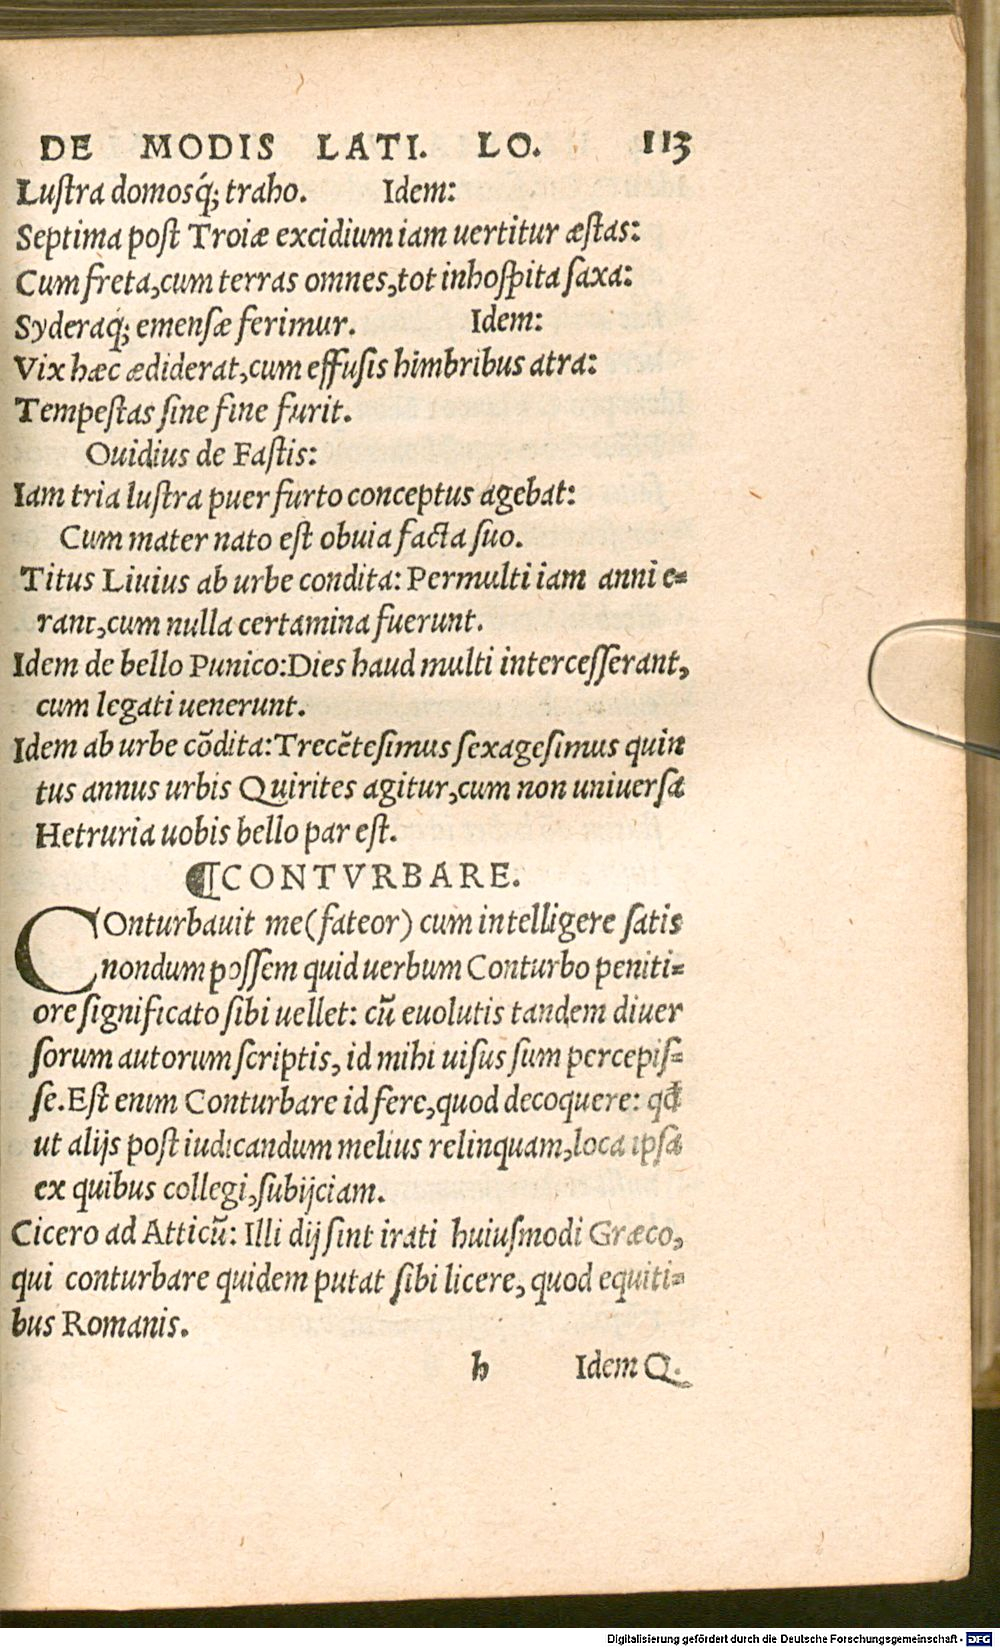 DE MODIS LATI. LO. 113
Luſtra domosq́; traho. Idem:
Septima poſt Troiæ excidium iam uertitur æſtas:
Cum freta,cum terras omnes,tot inhoſpita ſaxa:
Syderaq́; emenſæ ferimur. Idem:
Vix hæc ædiderat,cum effuſis himbribus atra:
Tempeſtas ſine fine furit.
Ouidius de Faſtis:
Iam tria luſtra puer furto conceptus agebat:
Cum mater nato eſt obuia facta ſuo.
Titus Liuius ab urbe condita: Permulti iam anni e⸗
rant,cum nulla certamina fuerunt.
Idem de bello Punico:Dies haud multi interceſſerant,
cum legati uenerunt.
Idem ab urbe cōdita:Trecētesimus sexageſimus quin
tus annus urbis Quirites agitur,cum non uniuerſa
Hetruria uobis bello par eſt.
¶CONTVRBARE.
COnturbauit me(fateor) cum intelligere ſatis
nondum poſſem quid uerbum Conturbo peniti⸗
ore ſignificato ſibi uellet: cū euolutis tandem diuer
ſorum autorum ſcriptis, id mihi uiſus ſum percepiſ⸗
ſe.Eſt enim Conturbare id fere,quod decoquere: qđ
ut alijs poſt iudicandum melius relinquam,loca ipſa
ex quibus collegi,ſubijciam.
Cicero ad Atticū: Illi dij ſint irati huiuſmodi Græco,
qui conturbare quidem putat ſibi licere, quod equiti⸗
bus Romanis.
h Idem Q.
Digitalisierung gefördert durch die Deutsche Forschungsgemeinschaft - DFG